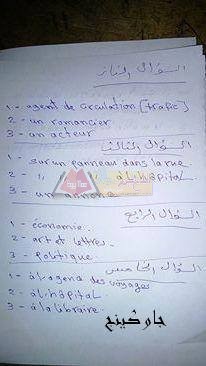 السؤال الثاني
1 - agent de circulation [trafic]
2 - un romancier
3 - un acteur
السؤال الثالث
1 - sur un panneau dans la rue
2 - " " à l'hôpital
3 - un annonce
السؤال الرابع
1 - économie.
2 - art et lettres.
3 - politique.
السؤال الخامس
1 - à l'agena des voyages
2 - à l'hôpital.
3 - à la libraire.
جام كينج